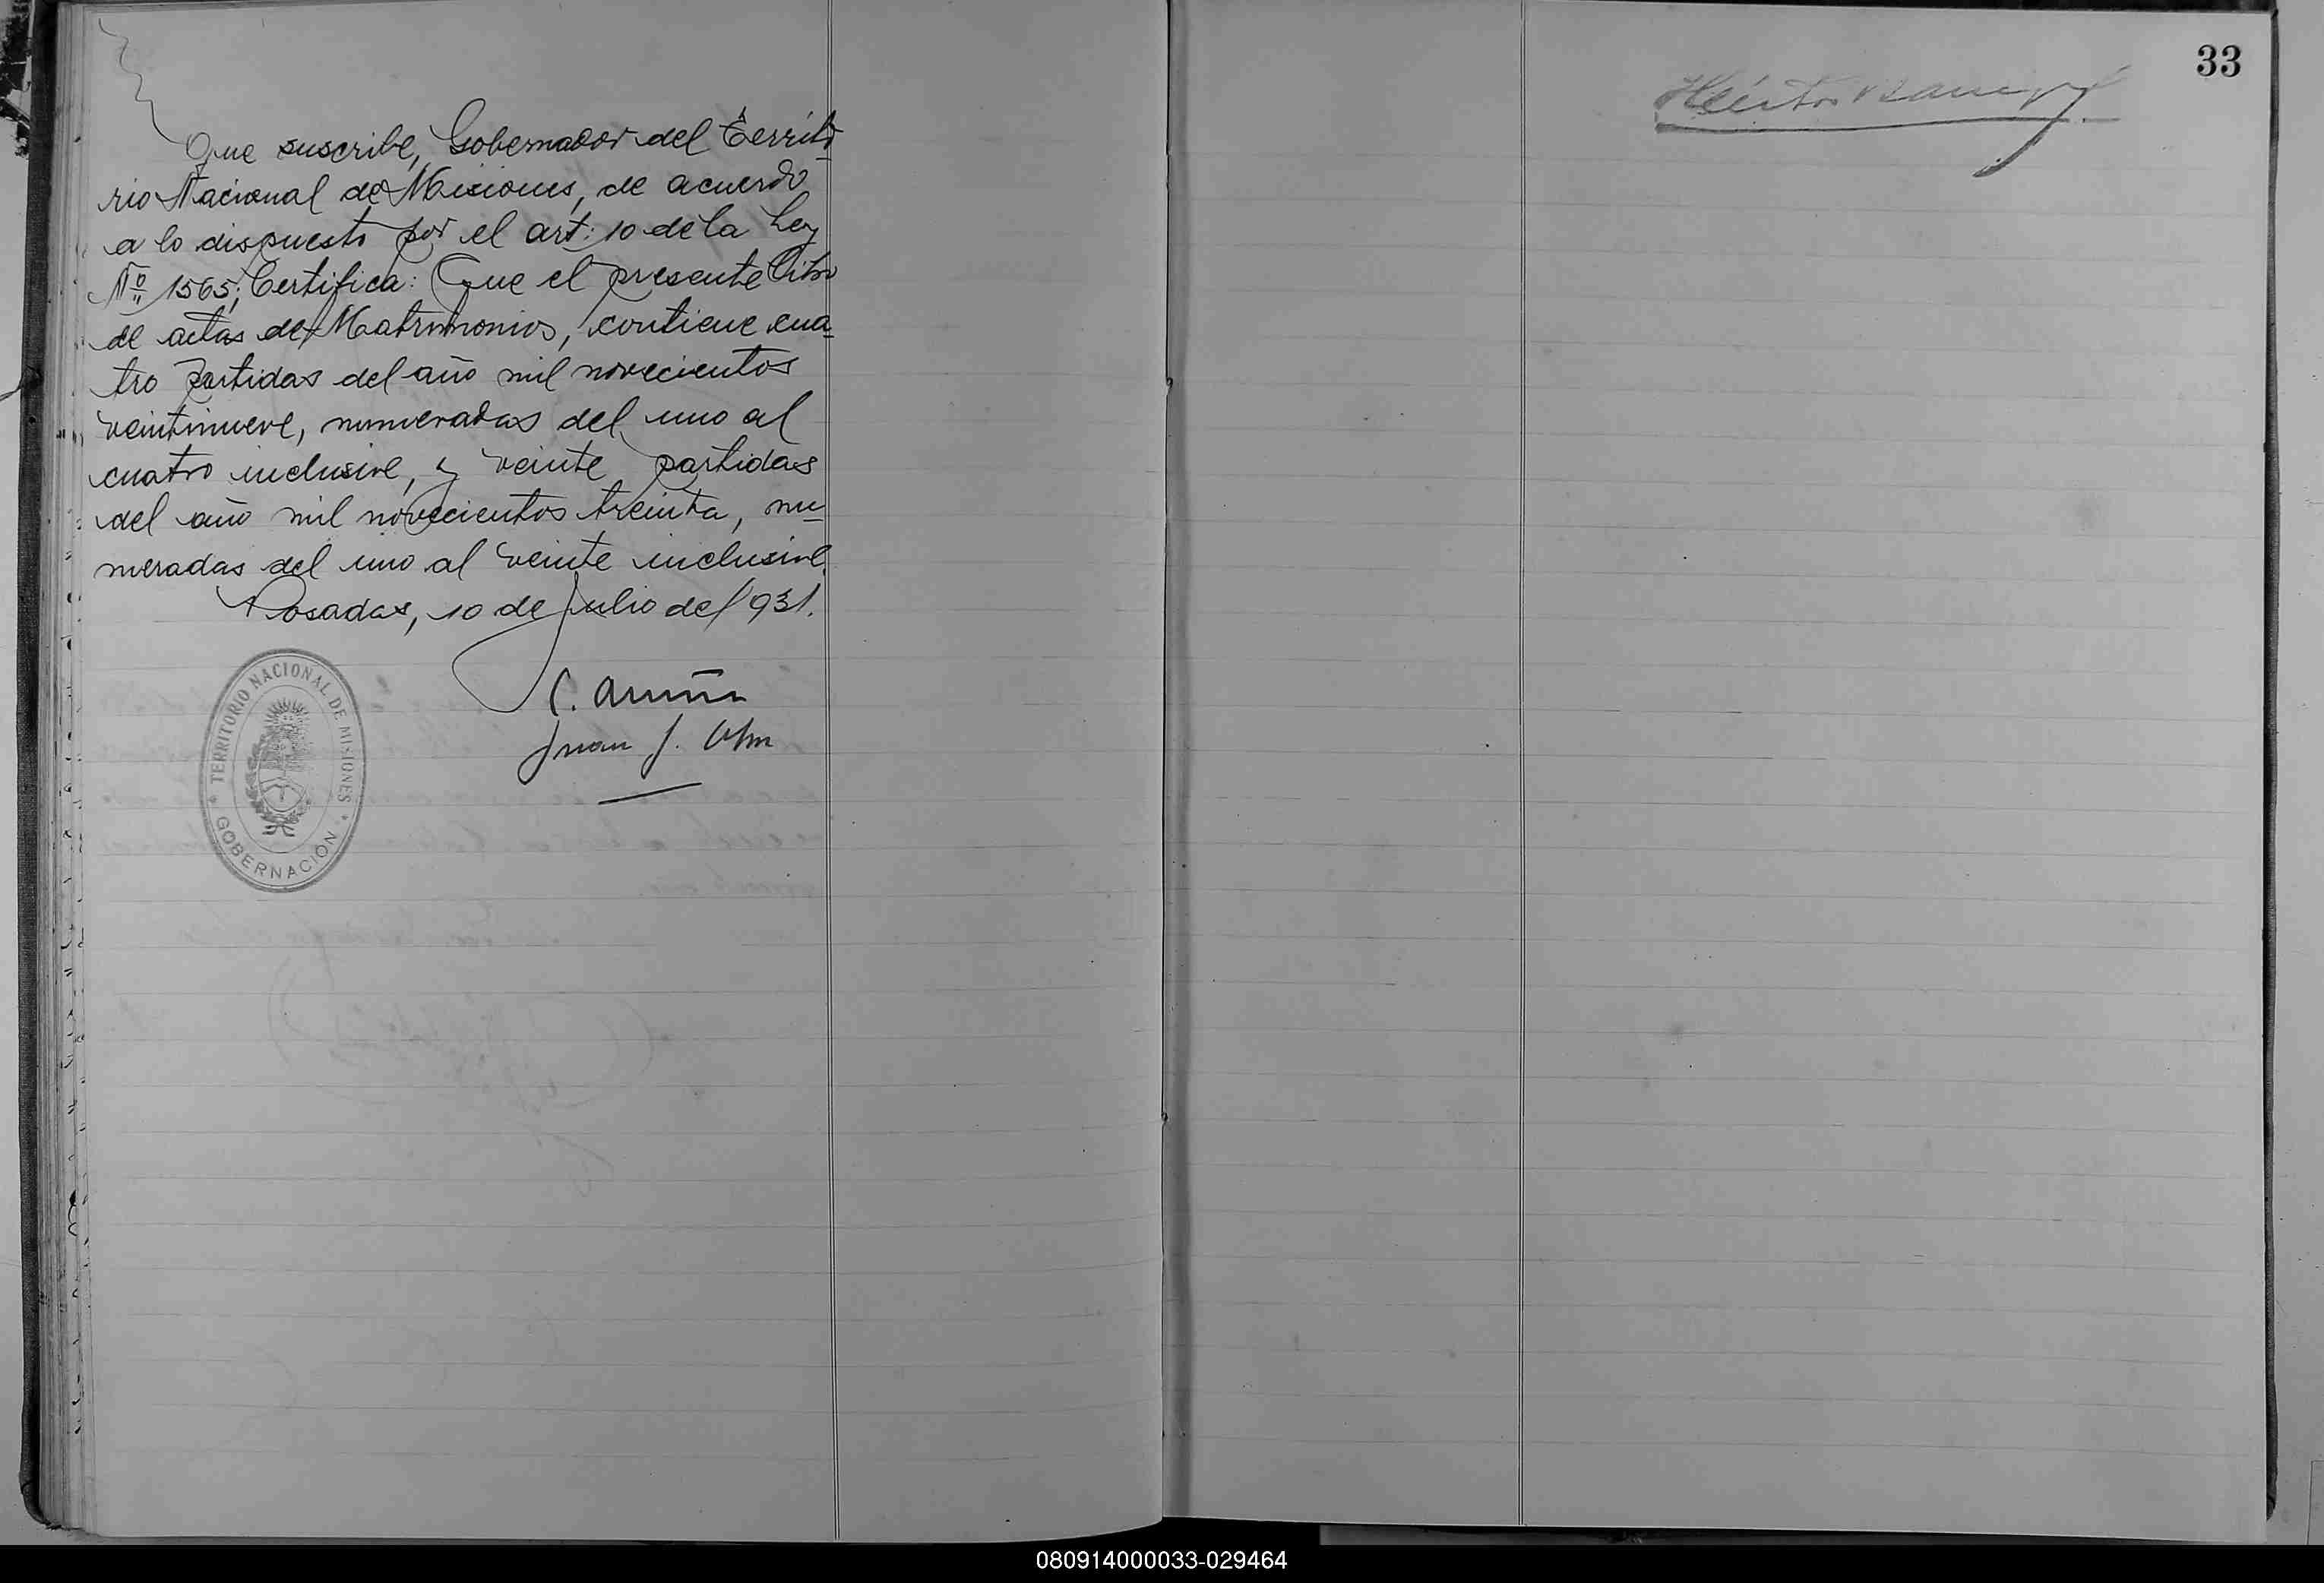 Que suscribe, Gobernador del Territo-
rio Nacional de Misiones, de acuerdo
a lo dispuesto por el art: 10 de la Ley
Nº 1565; Certifica: Que el presente libro
de actas de Matrimonios, contiene cua-
tro partidas del año mil novecientos
veintinueve, numeradas del uno al
cuatro inclusive, y veinte partidas
del año mil novecientos treinta, nu-
meradas del uno al veinte inclusive.
Posadas, 10 de Julio de 1931.
C. Acuña
Juan J.
TERRITORIO NACIONAL DE MISIONES
GOBERNACIÓN
33
Héctor Barreyro
080914000033-029464